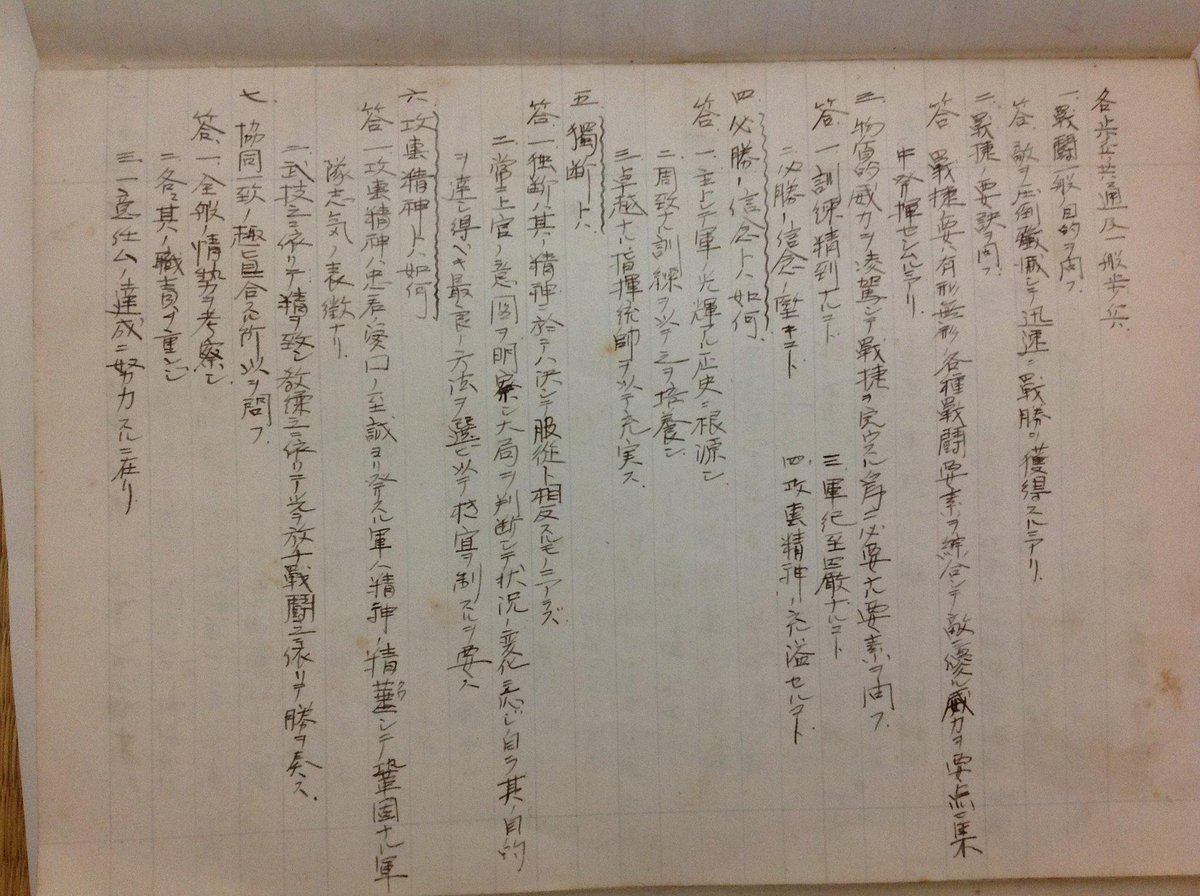 各歩兵共通及一般歩兵
一、戰闘一般ノ目的ヲ問フ
答 敵ヲ圧倒殲滅シテ迅速ニ戰勝ヲ獲得スルニアリ
二、戰捷ノ要訣問フ
答 戰捷ノ要ハ有形無形ノ各種戰闘要素ヲ綜合シテ敵ニ優ル威力ヲ要点ニ集
中発揮セシムルニアリ
三、物質的威力ヲ凌駕シテ戰捷ヲ完ウスル為ニ必要ナ要素ヲ問フ
答 一、訓練精到ナルコト 三、軍紀至厳ナルコト
二、必勝ノ信念ノ堅キコト 四、攻撃精神ノ充溢セルコト
四、必勝ノ信念トハ如何
答 一、主トシテ軍ノ光輝アル正史ニ根源シ
二、周致ナル訓練ヲ以テ之ヲ培養シ
三、卓越ナル指揮統帥ヲ以テ充実ス
五、獨断トハ
答 一、独断ハ其ノ精神ニ於テハ決シテ服從ト相反スルモノニアラズ
二、常ニ上官ノ意図ヲ明察シ大局ヲ判断シテ状況ノ変化ニ応ジ自ラ其ノ目的
ヲ達シ得ベキ最良ノ方法ヲ選ビ以テ機宜ヲ制スルヲ要ス
六、攻撃精神トハ如何
答 一、攻撃精神ハ忠君愛国ノ至誠ヨリ発スル軍人精神ノ精華ニシテ鞏固ナル軍
隊志気ノ表徴ナリ
二、武技之ニ依リテ精ヲ致シ教練之ニ依リテ光ヲ放チ戰闘之ニ依リテ勝ヲ奏ス
七、協同一致ノ趣旨ニ合スル所以ヲ問フ
答 一、全般ノ情勢ヲ考察シ
二、各々其ノ職責ヲ重ンジ
三、一意任ムノ達成ニ努力スルニ在リ